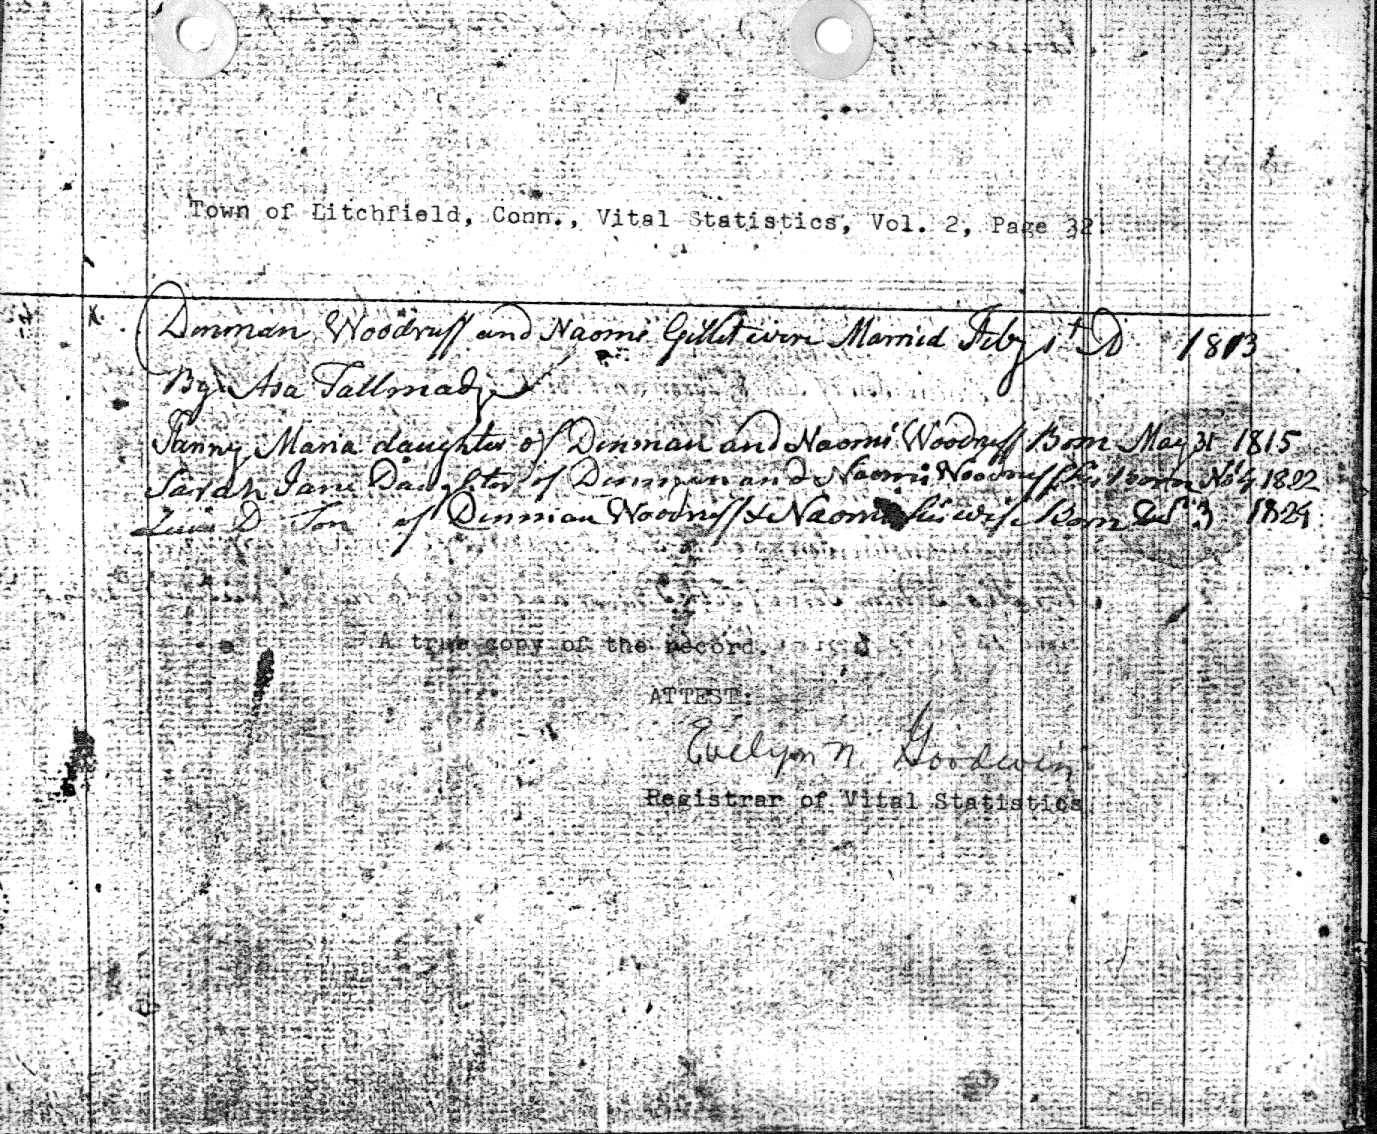 Town of Litchfield, Conn., Vital Statistics, Vol. 2, Page 32.
Dinman Woodruff and Naomi Gillet were Married Feby 1st D 1813
By Asa Tallmadge
Fanny Maria daughter of Dinman and Naomi Woodruff Born May 31 1815
Sarah Jane Daughter of Dinman and Naomi Woodruff born 1822
D. Son of Dinman Woodruff & Naomi his wife Born 3 1829
A true copy of the record.
ATTEST:
Evelyn N. Goodwin
Registrar of Vital Statistics